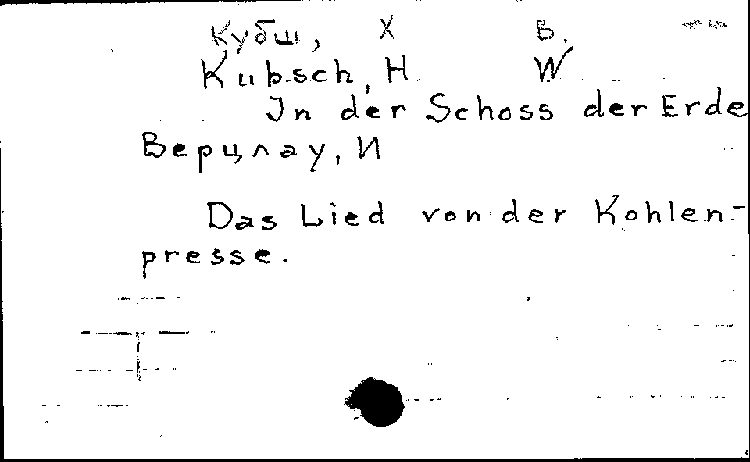 Кубш, Х В.
Kubsch, H. W
In der Schoss der Erde
Верцлау, И
Das Lied von der Kohlen-
presse.